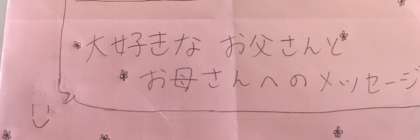 大好きな お父さんと
お母さんへのメッセージ